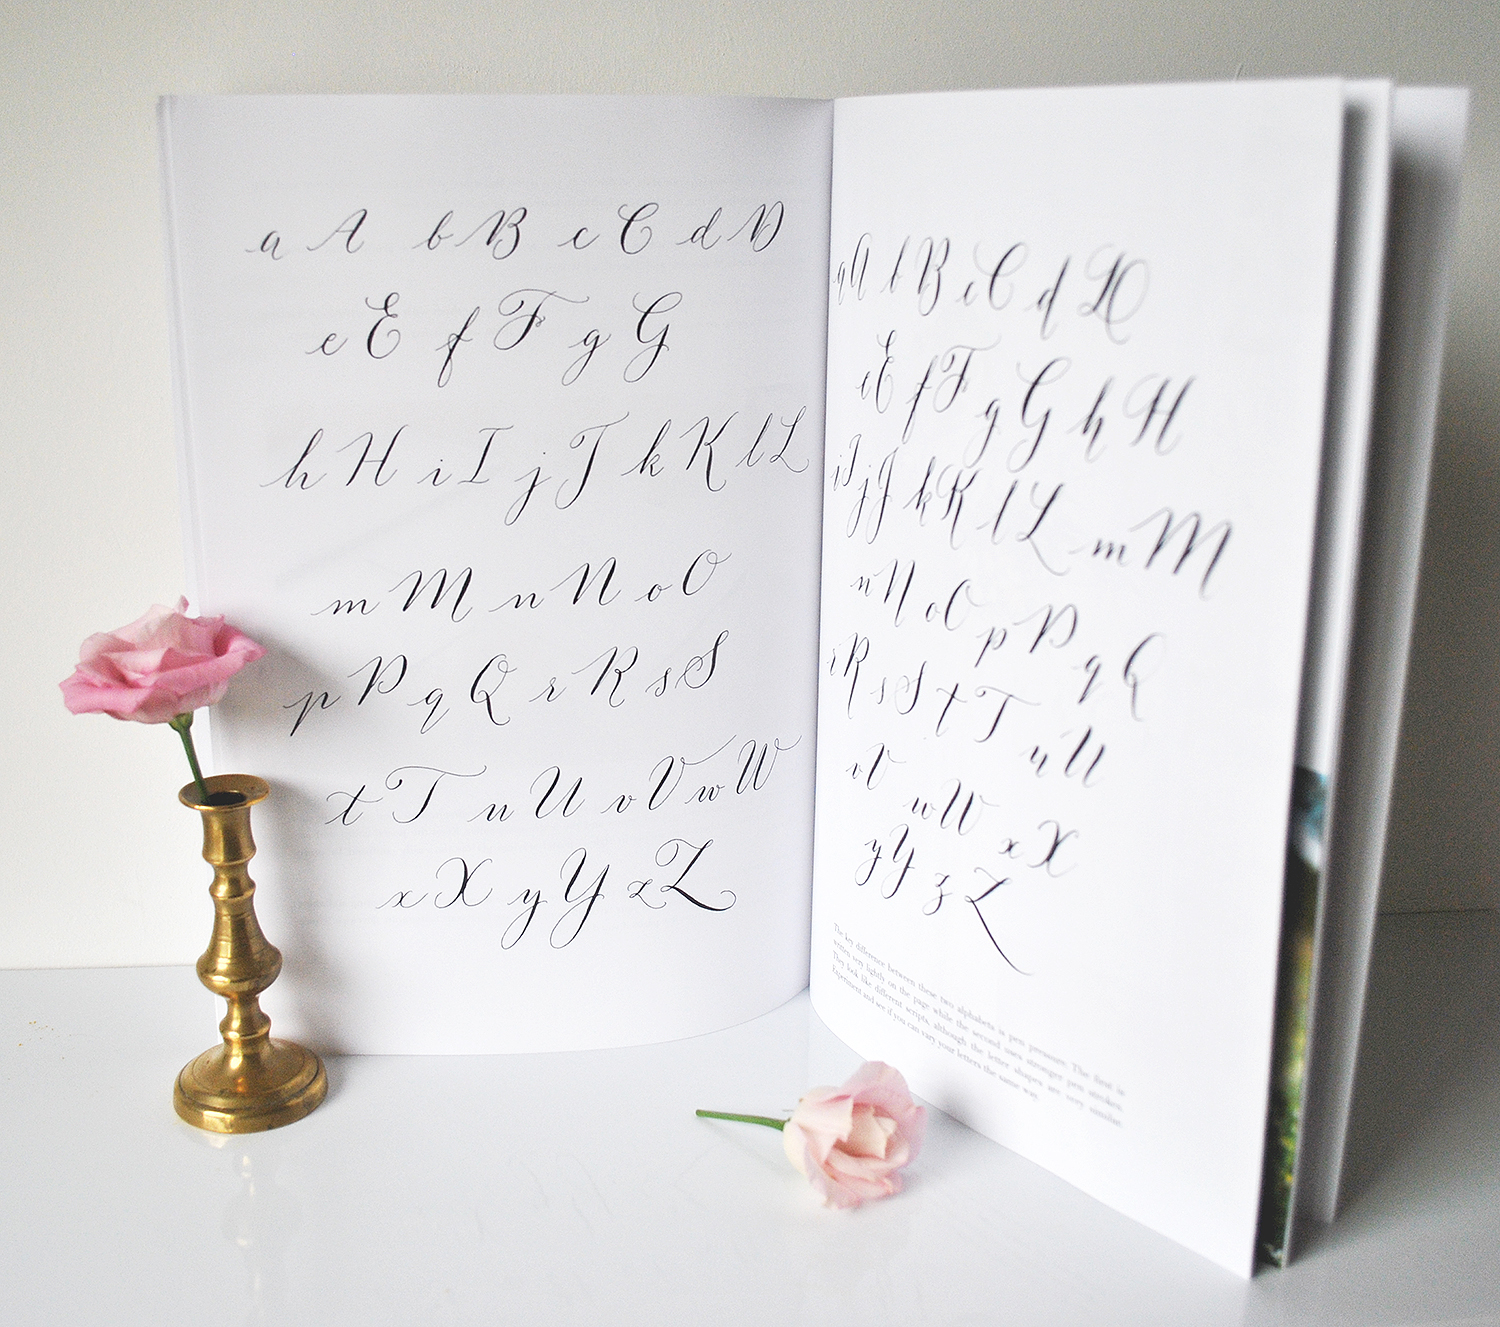 a A b B c C d D
e E f F g G
h H i I j J k K l L
m M n N o O
p P q Q r R s S
t T u U v V w W
x X y Y z Z
a A b B c C d D
e E f F g G h H
i I j J k K l L m M
n N o O p P q Q
r R s S t T u U
v V w W x X
y Y z Z
The key difference between these two alphabets is pen pressure. The first is
written very lightly on the page while the second uses stronger pen strokes.
They look like different scripts, although the letter shapes are very similar.
Experiment and see if you can vary your letters the same way.